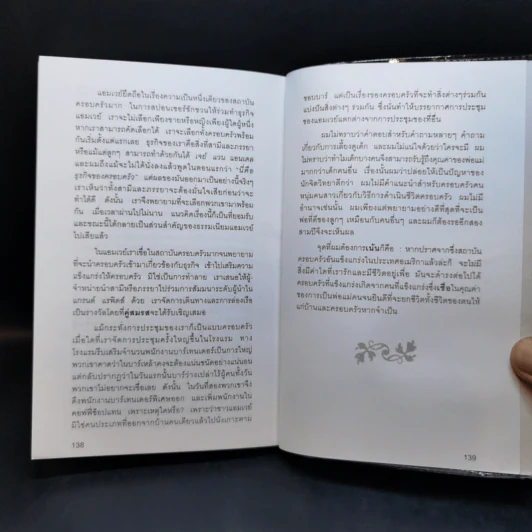 แอมเวย์ยึดถือในเรื่องความเป็นหนึ่งเดียวของสถาบัน
ครอบครัวมาก ในการสปอนเซอร์ชักชวนให้ร่วมทำธุรกิจ
แอมเวย์ เราจะไม่เลือกเพียงชายหรือหญิงเพียงผู้ใดผู้หนึ่ง
หากเราสามารถคัดเลือกได้ เราจะเลือกทั้งครอบครัวพร้อม
กัน เราชอบทั้งครอบครัวเลย ธุรกิจของเราคือสิ่งที่สามีและภรรยา
หรือแม้แต่ลูกๆ สามารถทำด้วยกันได้ เจย์ แวน แอนเดล
และผมถึงแม้จะไม่ได้นั่งลงแล้วพูดในตอนแรกว่า "นี่คือ
ธุรกิจของครอบครัว" แต่ผลของมันออกมาเป็นอย่างนี้จริงๆ
เราเห็นว่าทั้งสามีและภรรยาจะต้องมั่นใจเสียก่อนว่าจะ
ทำได้ดี ดังนั้น เราจึงพยายามที่จะเลือกพวกเขามาพร้อม
กัน เมื่อเวลาผ่านไปไม่นาน แนวคิดเรื่องนี้ก็เป็นที่ยอมรับ
และขณะนี้ได้กลายเป็นส่วนสำคัญของธรรมเนียมแอมเวย์
ไปเสียแล้ว
ในแอมเวย์เราเชื่อในสถาบันครอบครัวมากจนพยายาม
ที่จะนำครอบครัวเข้ามาเกี่ยวข้องกับธุรกิจ เข้าไปเสริมความ
แข็งแกร่งให้ครอบครัว มิใช่เป็นการทำลาย เราเสนอให้ผู้-
จำหน่ายนำสามีหรือภรรยาไปร่วมการสัมมนาระดับผู้นำใน
แกรนด์ แรพิดส์ ด้วย เราจัดการเดินทางและการล่องเรือ
เป็นรางวัลโดยที่คู่สมรสจะได้รับเชิญเสมอ
แม้กระทั่งการประชุมของเราก็เป็นแบบครอบครัว
เมื่อใดที่เราจัดการประชุมครั้งใหญ่ขึ้นในโรงแรม ทาง
โรงแรมก็เสริมจำนวนพนักงานบาร์เทนเดอร์เป็นการใหญ่
พวกเขาคาดว่าในบาร์เหล้าคงจะต้องแน่นขนัดอย่างแน่นอน
แต่กลับปรากฏว่าในวันแรกนั้นบาร์ว่างเปล่าไร้ผู้คนทั้งวัน
พวกเขาไม่อยากจะเชื่อเลย ดังนั้น ในวันที่สองพวกเขาจึง
ดึงพนักงานบาร์เทนเดอร์พิเศษออก และเพิ่มพนักงานใน
คอฟฟี่ช็อปแทน เพราะเหตุใดหรือ? เพราะว่าชาวแอมเวย์
มิใช่คนประเภทที่ออกจากบ้านคนเดียวแล้วไปนั่งเกาะตาม
138
ขอบบาร์ แต่เป็นเรื่องของครอบครัวที่จะทำสิ่งต่างๆร่วมกัน
แบ่งปันสิ่งต่างๆ ร่วมกัน ซึ่งนั่นทำให้บรรยากาศการประชุม
ของแอมเวย์แตกต่างจากการประชุมของที่อื่น
ผมไม่ทราบว่าคำตอบสำหรับคำถามหลายๆ คำถาม
เกี่ยวกับการเลี้ยงดูเด็ก และผมไม่แน่ใจด้วยว่าใครจะมี ผม
ไม่ทราบว่าทำไมเด็กบางคนจึงสามารถรับรู้ถึงคุณค่าของพ่อแม่
มากกว่าเด็กคนอื่น เรื่องนั้นผมว่าปล่อยให้เป็นปัญหาของ
นักจิตวิทยาดีกว่า ผมไม่มีคำแนะนำสำหรับครอบครัวคน
หนุ่มคนสาวเกี่ยวกับวิธีการดำเนินชีวิตครอบครัว ผมไม่มี
อำนาจเช่นนั้น ผมเพียงแต่พยายามอย่างดีที่สุดที่จะเป็น
พ่อที่ดีของลูกๆ เหมือนกับคนอื่นๆ และผมก็ต้องรออีกสอง
สามปีจึงจะเห็นผล
จุดที่ผมต้องการเน้นก็คือ : หากปราศจากซึ่งสถาบัน
ครอบครัวอันแข็งแกร่งในประเทศอเมริกาแล้วล่ะก็ จะไม่มี
สิ่งมีค่าใดที่เรารักและมีชีวิตอยู่เพื่อ มันจะดำรงต่อไปได้
ครอบครัวที่แข็งแกร่งเกิดจากคนที่แข็งแกร่งซึ่งเชื่อในคุณค่า
ของการเป็นพ่อแม่คนจนยินดีที่จะยกชีวิตทั้งชีวิตของตนให้
แก่บ้านและครอบครัวหากจำเป็น
139